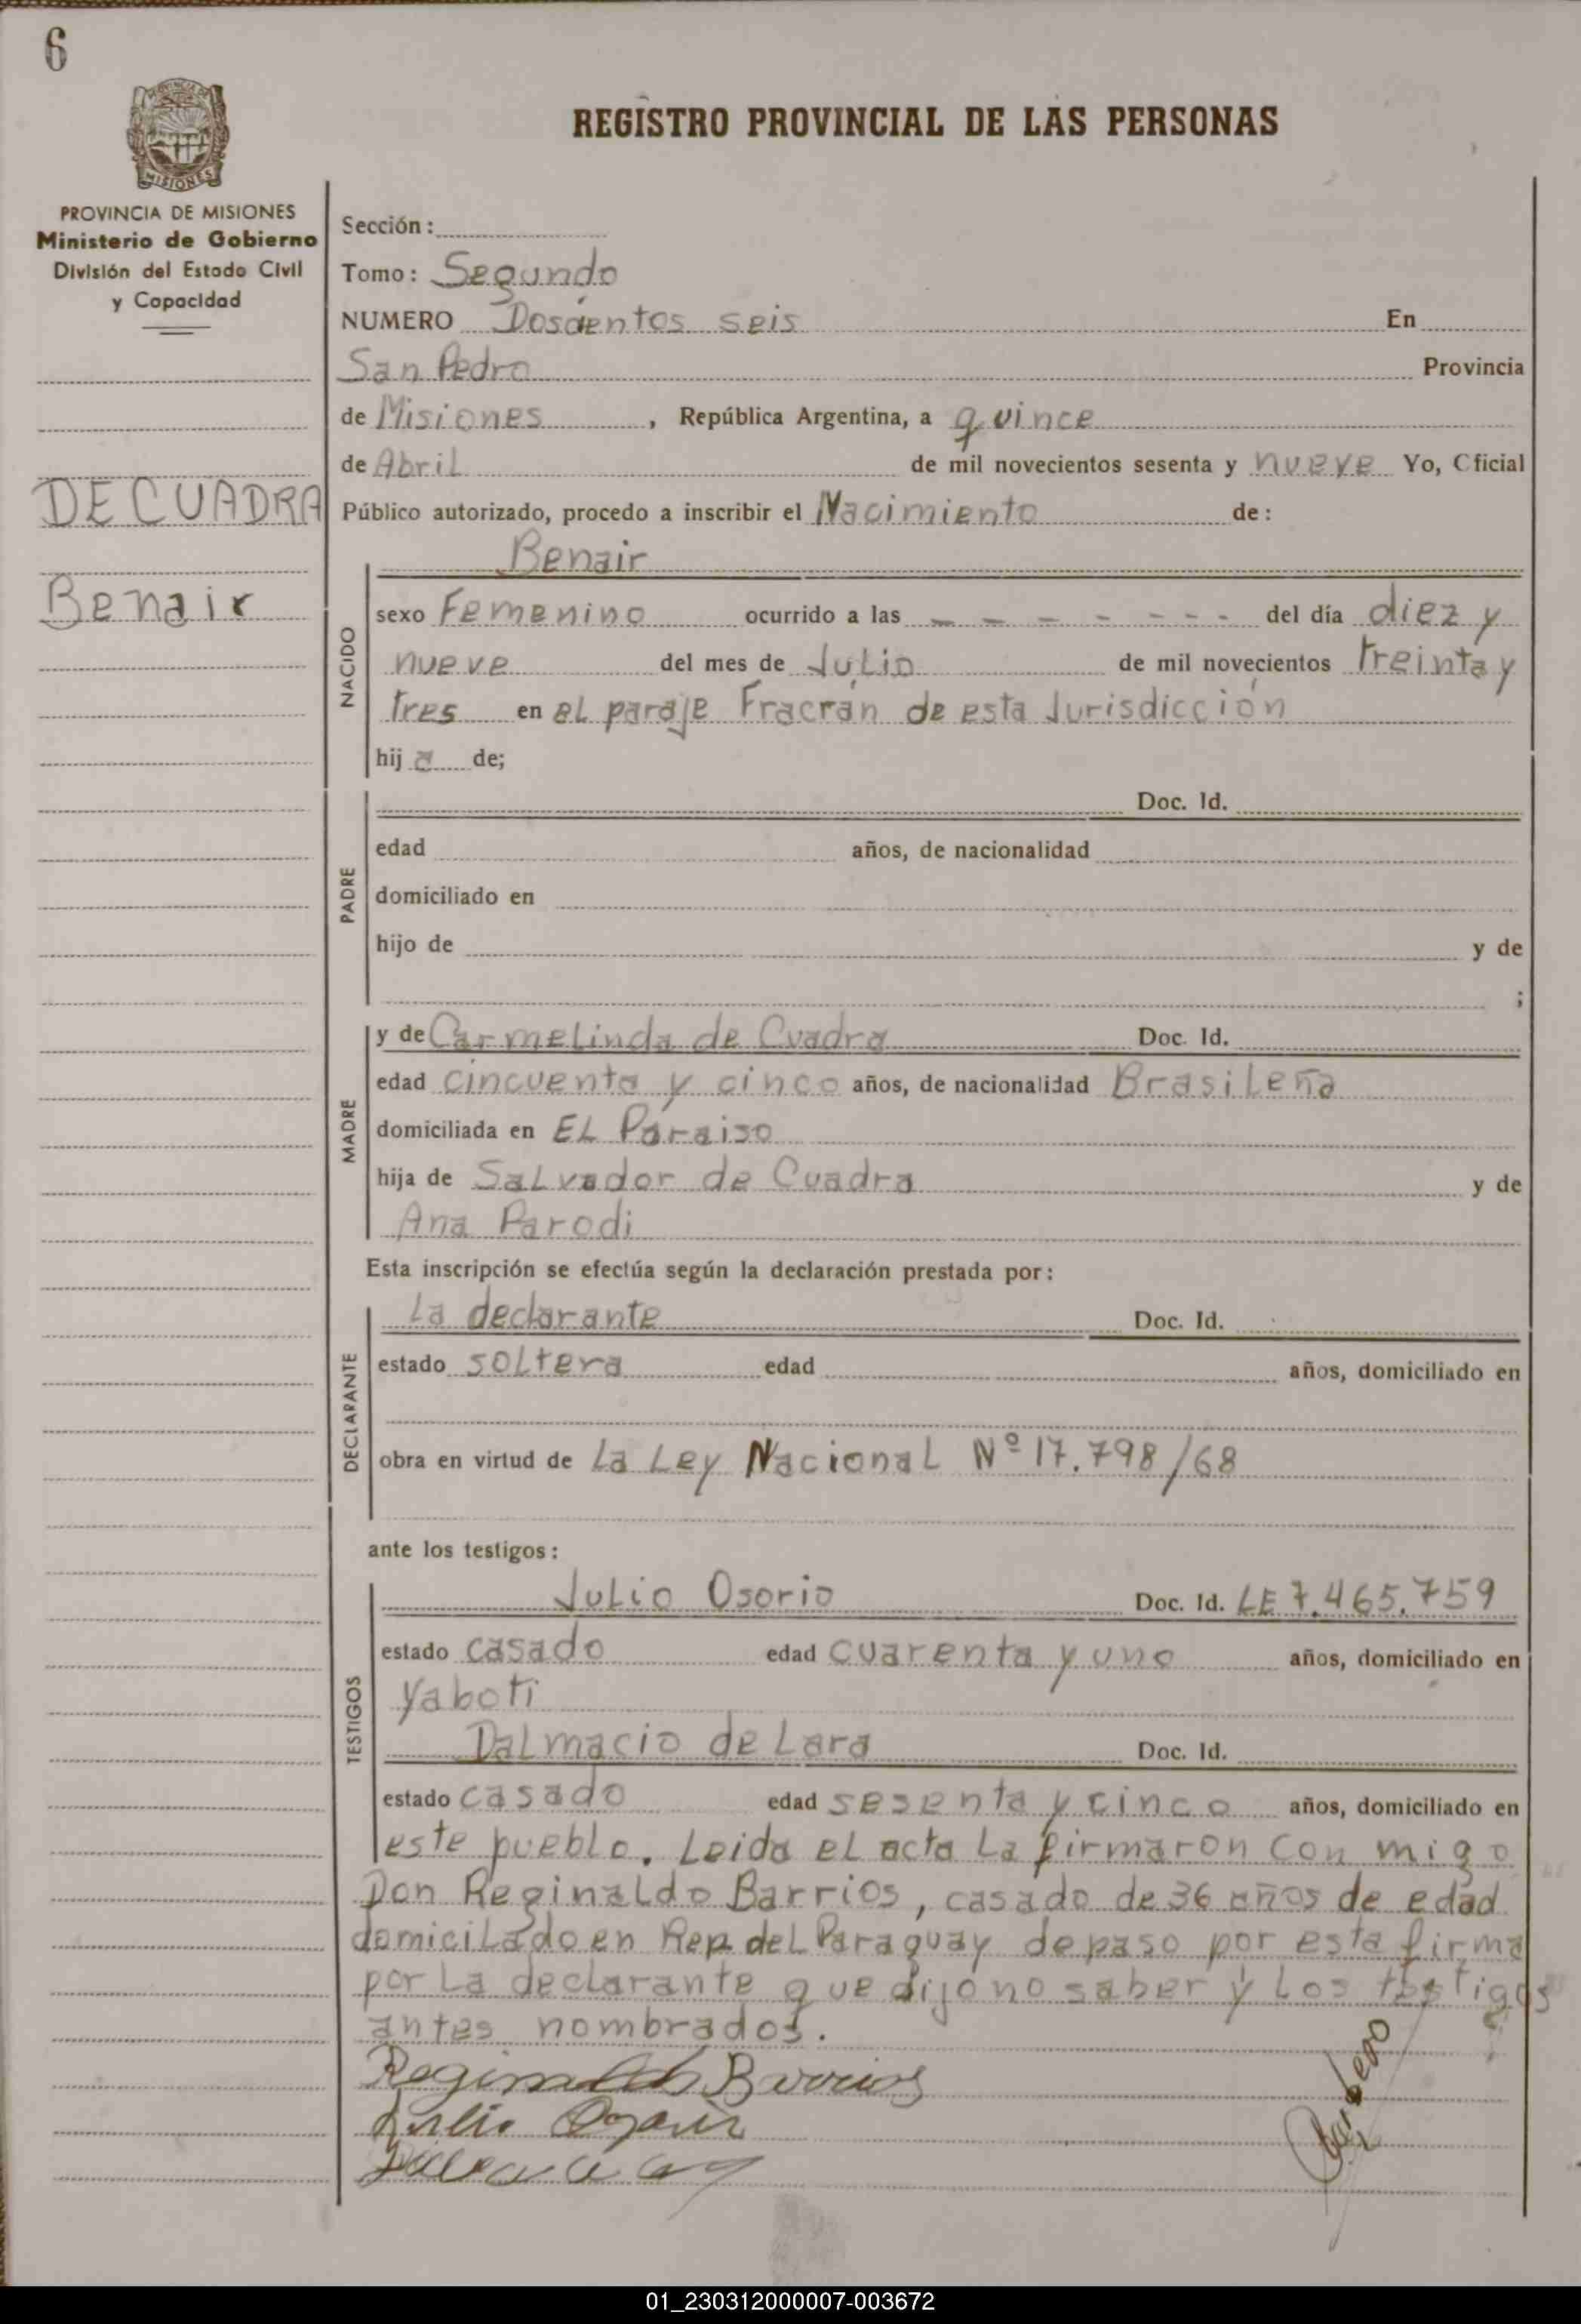 6
PROVINCIA DE MISIONES
PROVINCIA DE MISIONES
Ministerio de Gobierno
División del Estado Civil
y Capacidad
DE CUADRA
Benair
REGISTRO PROVINCIAL DE LAS PERSONAS
Sección:
Tomo: Segundo
NUMERO Doscientos seis En
San Pedro Provincia
de Misiones, República Argentina, a quince
de Abril de mil novecientos sesenta y nueve Yo, Oficial
Público autorizado, procedo a inscribir el Nacimiento de:
NACIDO
Benair
sexo Femenino ocurrido a las - - - - - - - del día diez y
nueve del mes de Julio de mil novecientos treinta y
tres en el paraje Fracrán de esta Jurisdicción
hija de;
PADRE
Doc. Id.
edad años, de nacionalidad
domiciliado en
hijo de y de
;
MADRE
y de Carmelinda de Cuadra Doc. Id.
edad cincuenta y cinco años, de nacionalidad Brasileña
domiciliada en El Paraiso
hija de Salvador de Cuadra y de
Ana Parodi
Esta inscripción se efectúa según la declaración prestada por:
DECLARANTE
La declarante Doc. Id.
estado soltera edad años, domiciliado en
obra en virtud de La Ley Nacional Nº 17.798/68
ante los testigos:
TESTIGOS
Julio Osorio Doc. Id. LE 7.465.759
estado casado edad cuarenta y uno años, domiciliado en
Yaboti
Dalmacio de Lara Doc. Id.
estado casado edad sesenta y cinco años, domiciliado en
este pueblo. Leida el acta La firmaron con migo
Don Reginaldo Barrios, casado de 36 años de edad
domicilado en Rep. del Paraguay de paso por esta firma
por La declarante que dijo no saber y Los testigos
antes nombrados.
Reginaldo Barrios
Julio Osorio
01_230312000007-003672